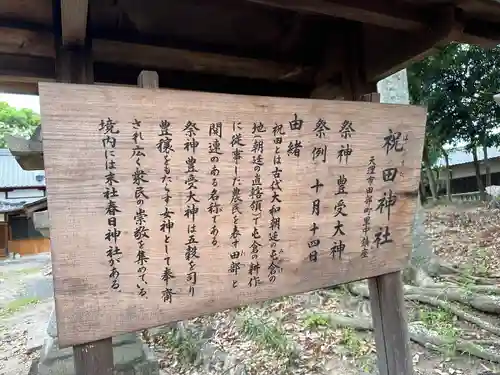 祝田神社
天理市田部町字中鎮座
祭神 豊受大神
祭例 十月十四日
由緒
祝田とは古代大和朝廷の屯倉の
地(朝廷の直轄領)で屯倉の耕作
に従事した農民を表す田部と
関連のある名称である。
祭神 豊受大神は五穀を司り
豊穣をもたらす女神として奉斎
され広く衆民の崇敬を集めている。
境内には末社春日神社がある。